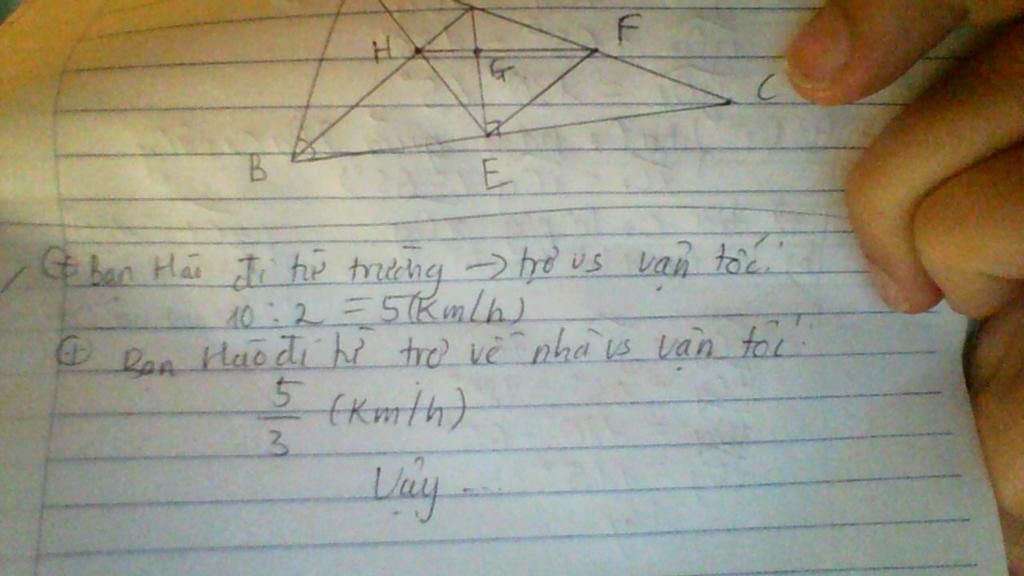 H
F
G
C
B
E
+ bạn Hảo đi từ trường -> trọ vs vận tốc:
10 : 2 = 5(Km/h)
+ Bạn Hảo đi từ trọ về nhà vs vận tốc:
5/3 (Km/h)
Vậy ...